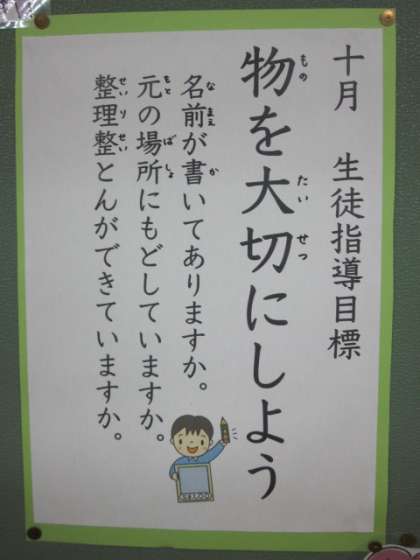 十月　生徒指導目標
物を大切にしよう
名前が書いてありますか。
元の場所にもどしていますか。
整理整とんができていますか。